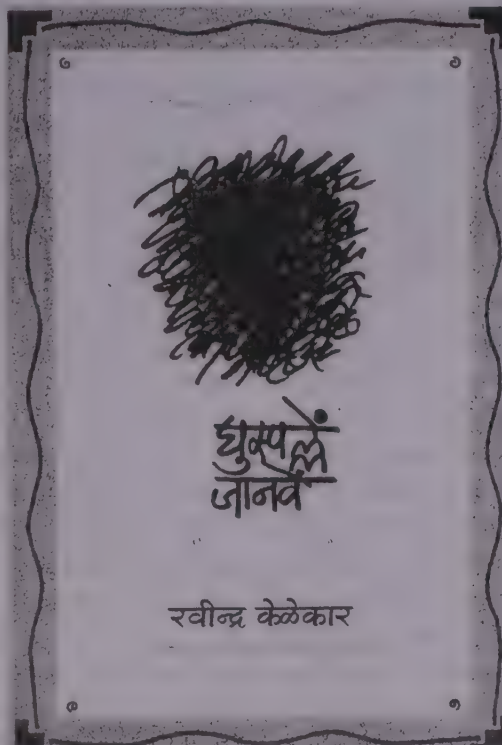 घुस्पल्लें
जानवें
रवीन्द्र केळेकार